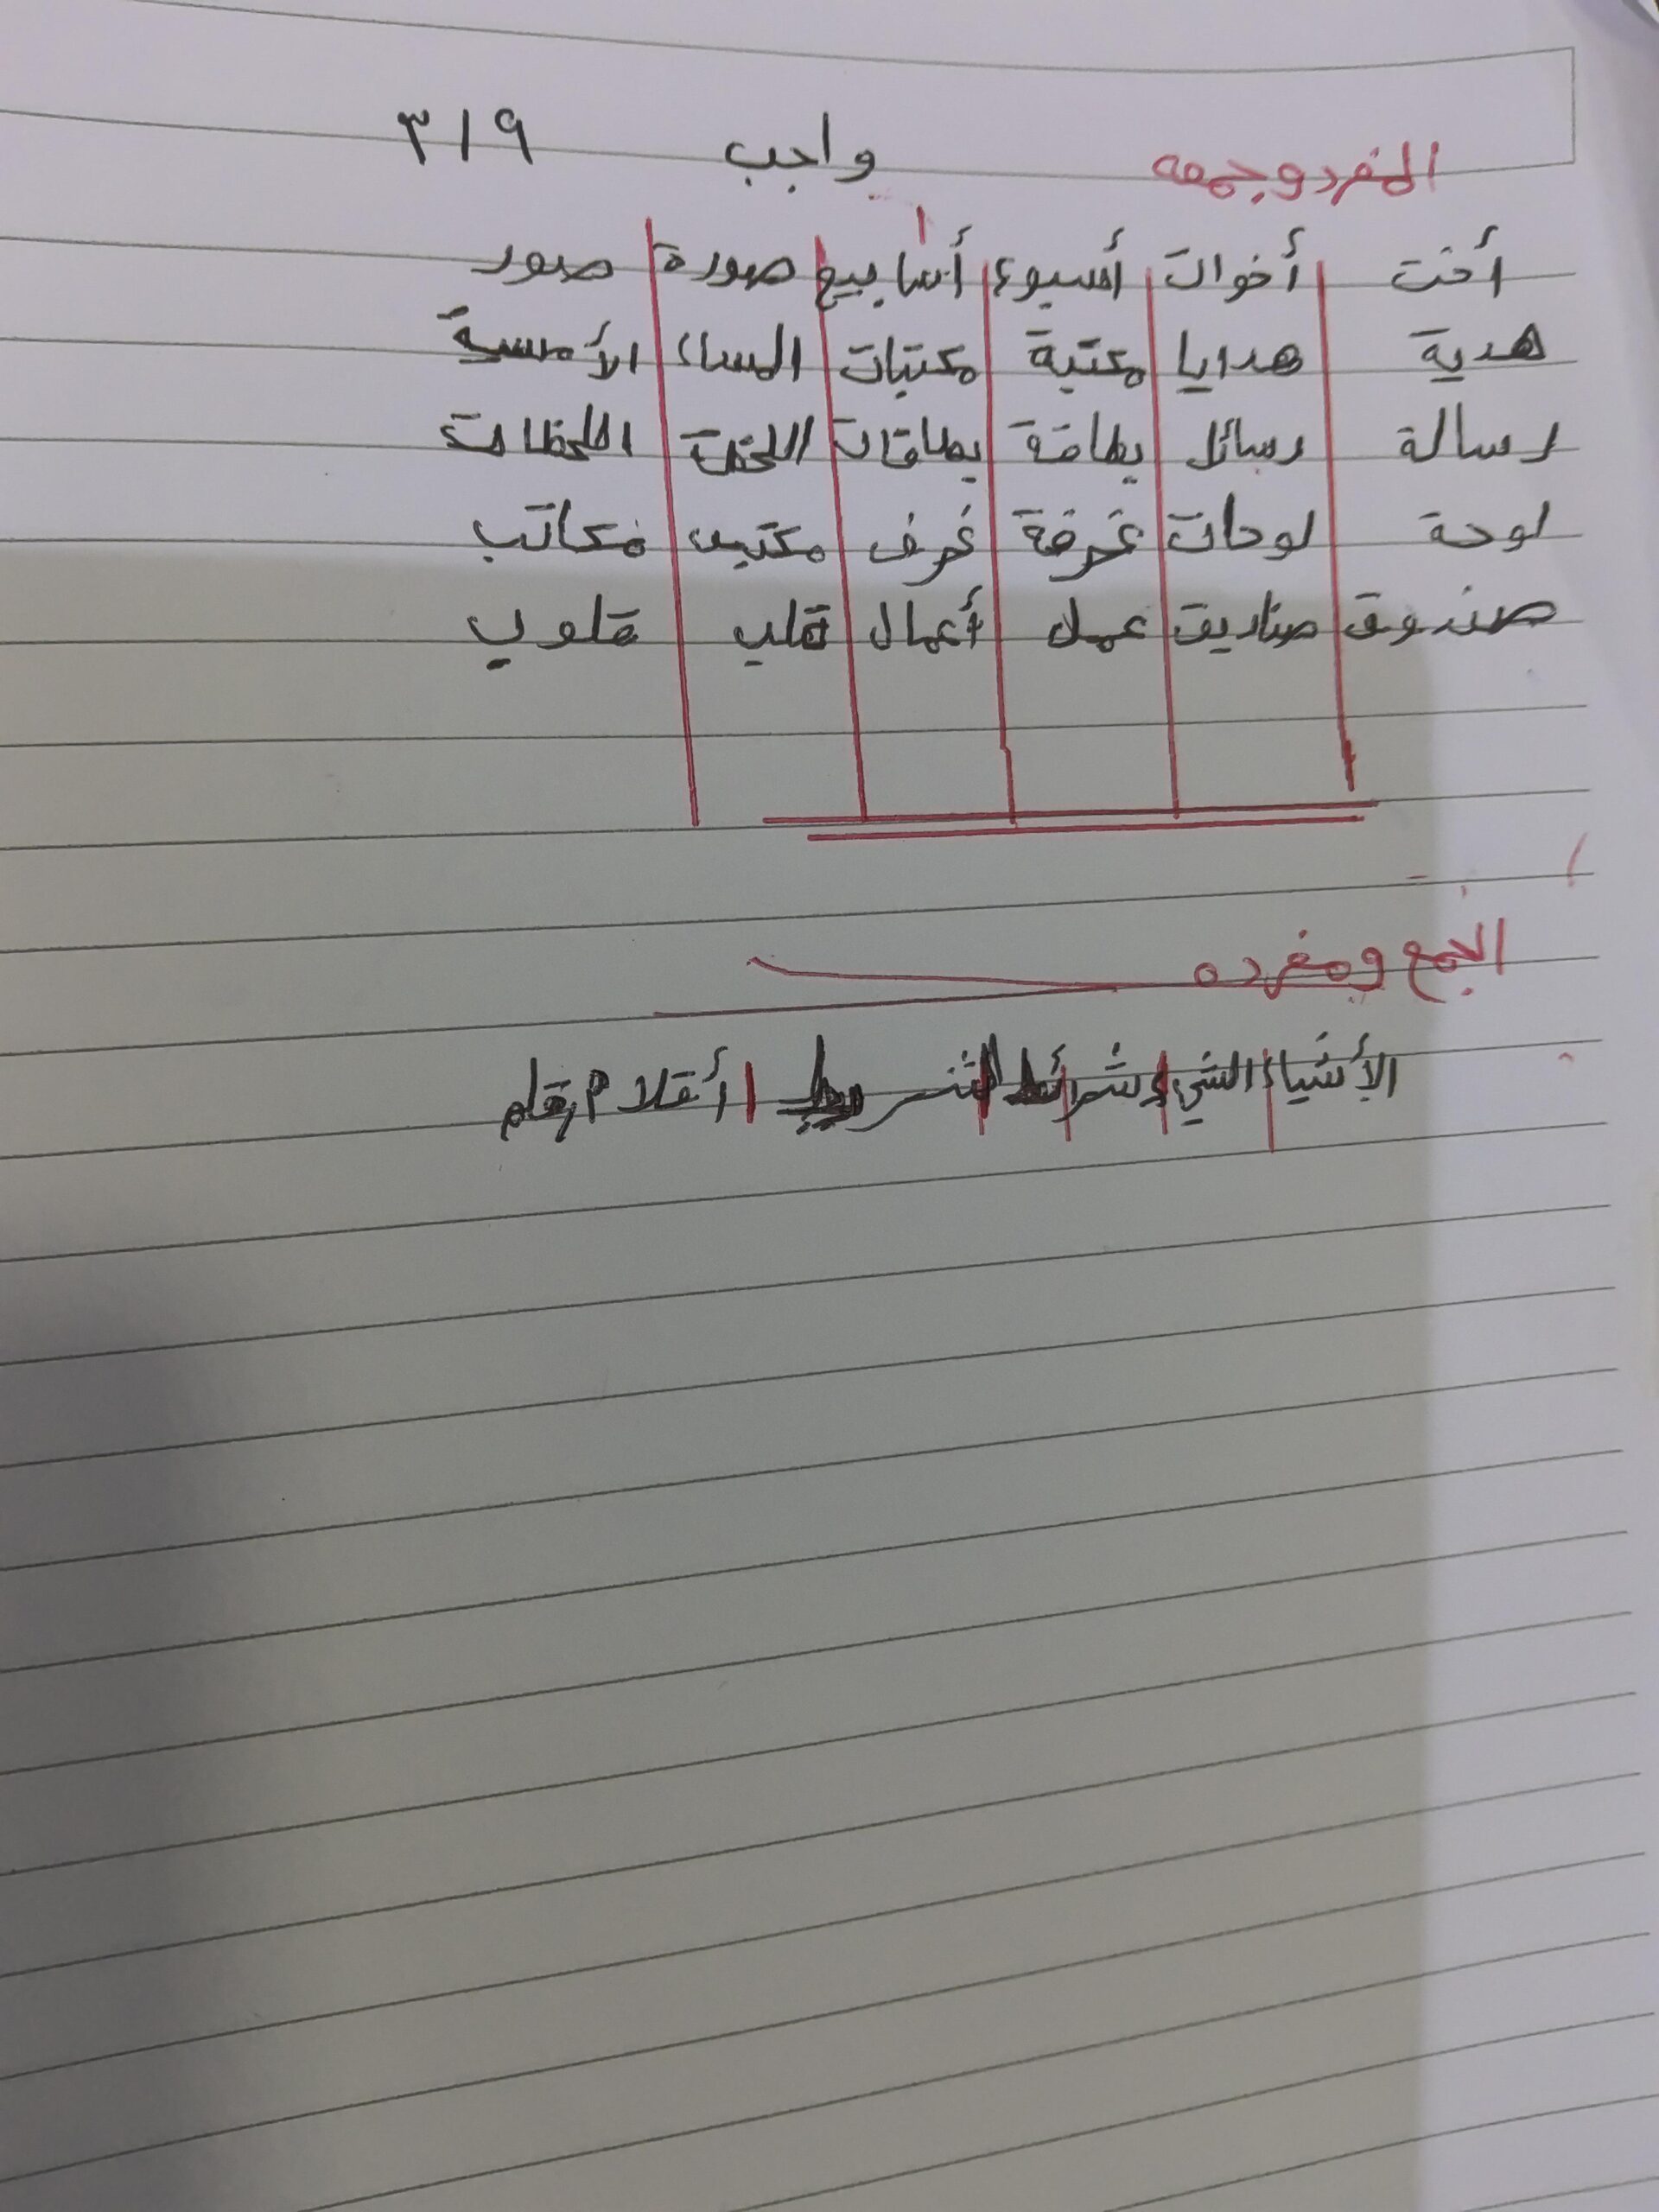 المفرد وجمعه واجب ٣/٩
أخت أخوات أسبوع أسابيع صورة صور
هدية هدايا مكتبة مكتبات المساء الأمسية
رسالة رسائل بطاقة بطاقات اللحظة اللحظات
لوحة لوحات غرفة غرف مكتب مكاتب
صندوق صناديق عمل أعمال قلب قلوب
الجمع ومفرده
الأشياء الشيء شرائط أقلام قلم